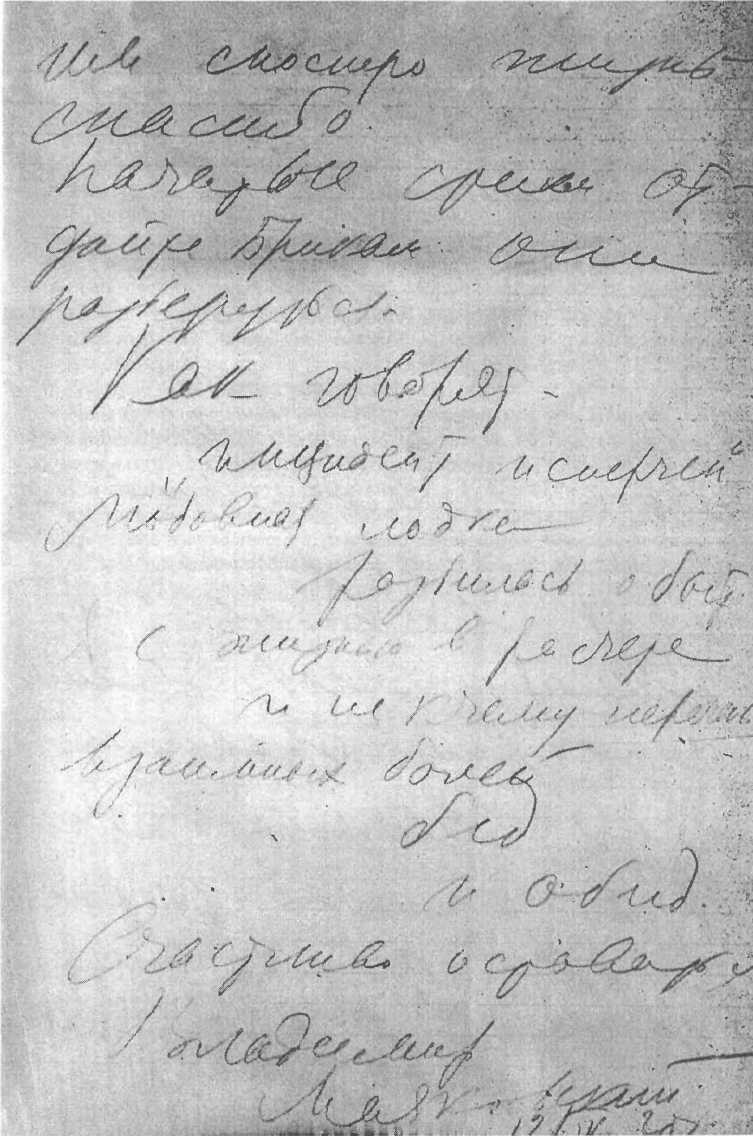 им сносную жизнь
спасибо.
Начатые стихи от-
дайте Брикам они
разберутся.
Как говорят –
„инцидент исперчен"
Любовная лодка
разбилась о быт.
Я с жизнью в расчете
и не к чему перечень
взаимных болей
бед
и обид.
Счастливо оставаться
Владимир
Маяковский
12/IV 30